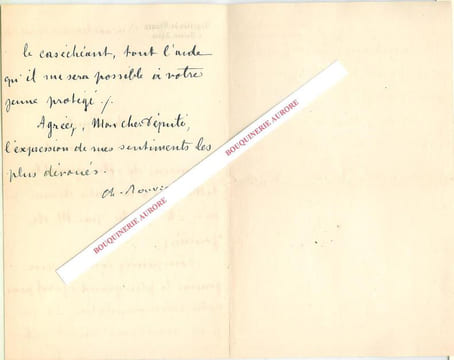 le cas échéant, tout l'aide
qu'il me sera possible à votre
jeune protégé ./.
Agréez, Mon cher Député,
l'expression de mes sentiments les
plus dévoués.
BOUQUINERIE AURORE
BOUQUINERIE AURORE